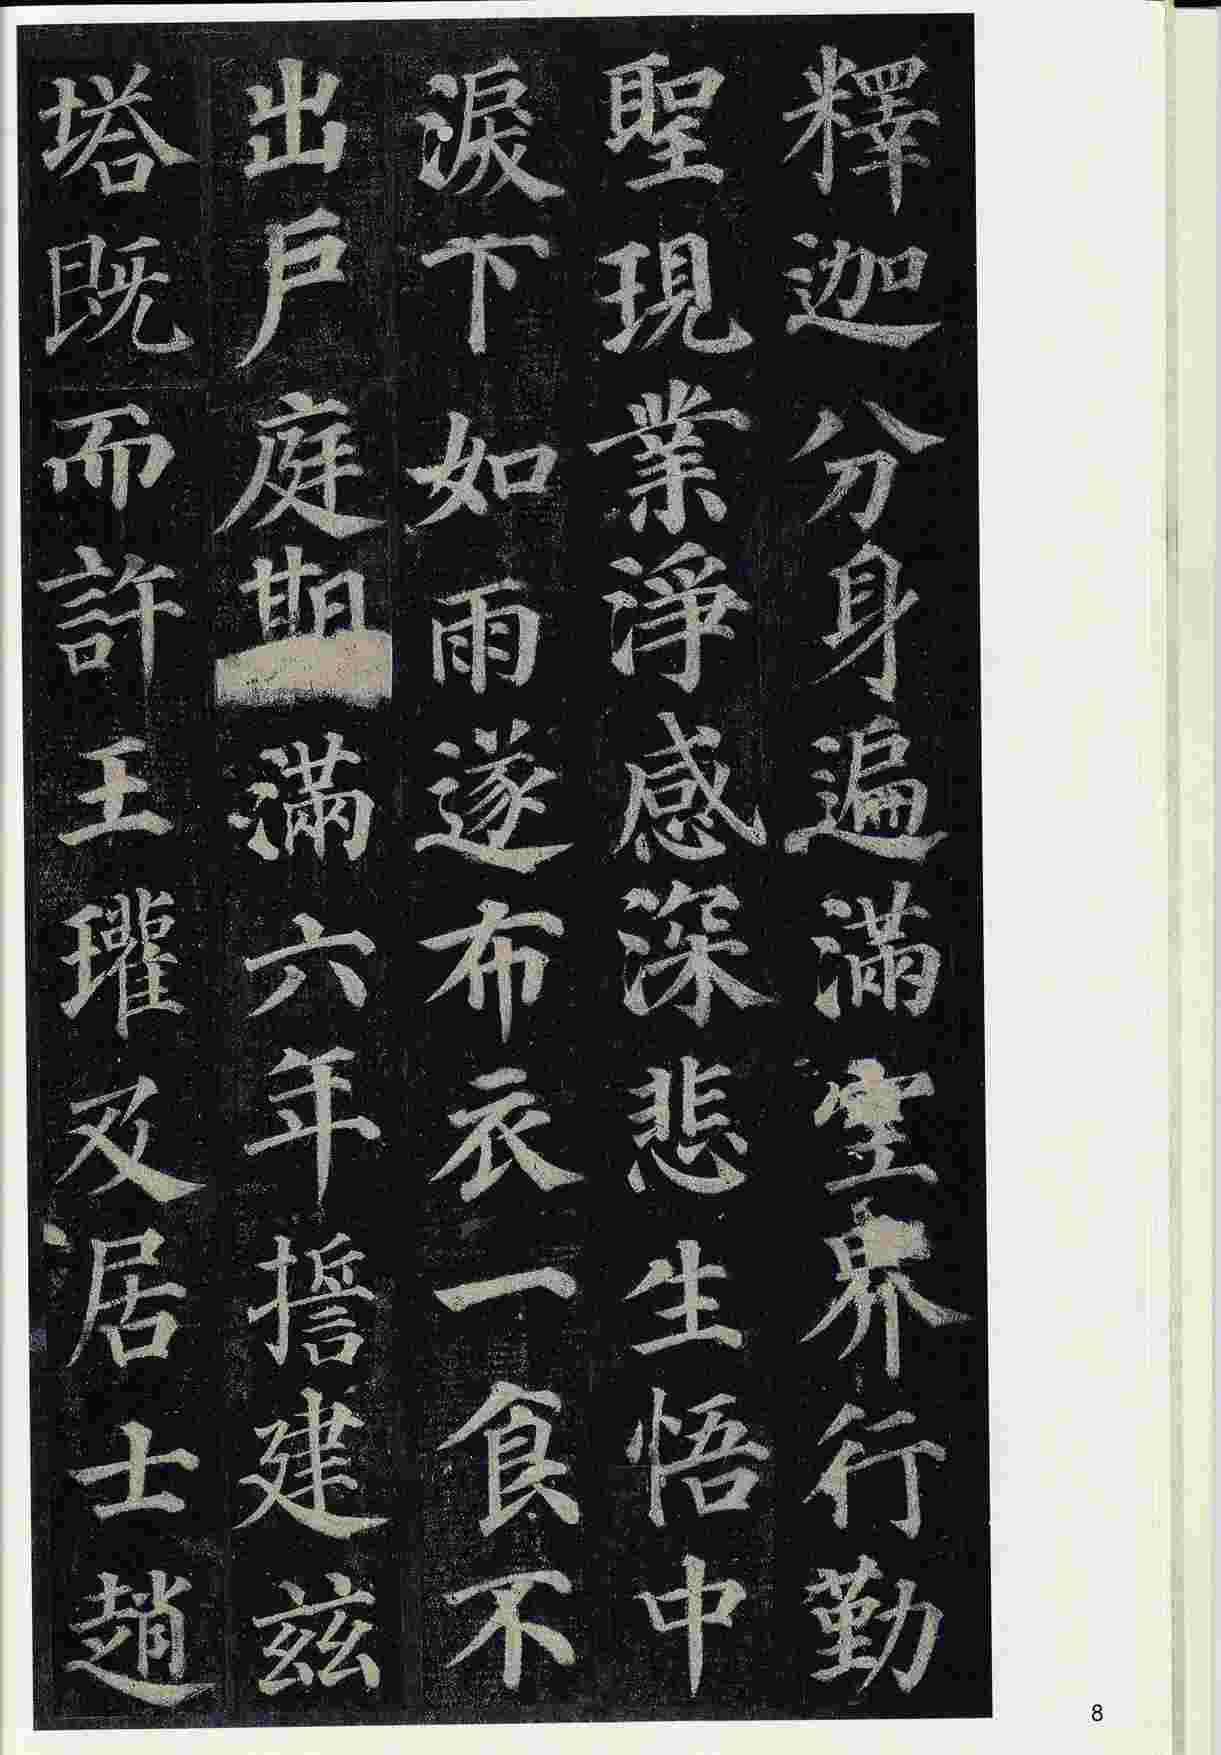 釋迦分身遍滿空界行勤
聖現業淨感深悲生悟中
淚下如雨遂布衣一食不
出戶庭期滿六年誓建茲
塔既而許王瓘及居士趙
8